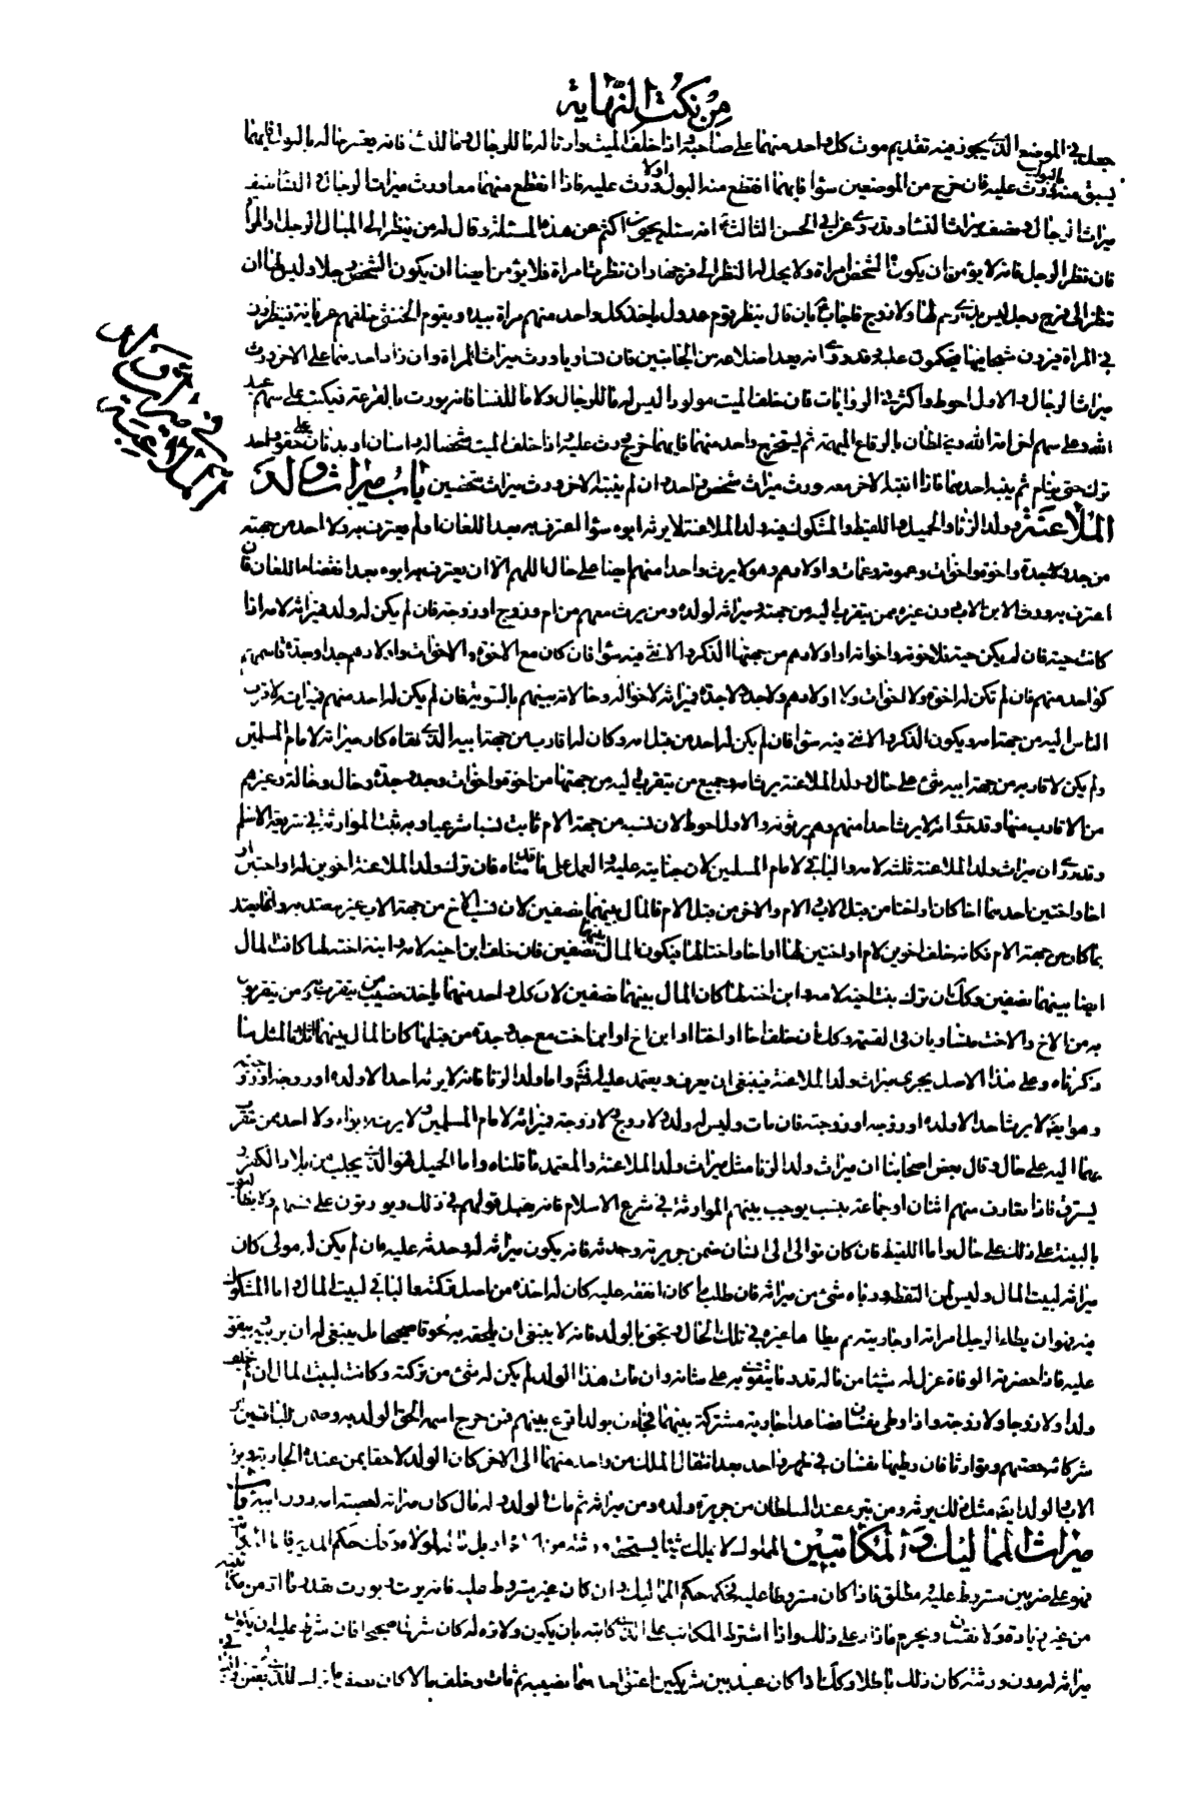 من نكت النهاية
جعل في الموضع الذي يجوز فيه تقديم موت كل واحد منهما على صاحبه واذا خلف الميت وارثا له ما للرجال وما للنساء فانه يعتبر حاله بالبول فايهما
يسبق منه ورث عليه فان خرج من الموضعين سواء فايهما انقطع منه البول اولا ورث عليه فاذا انقطع منهما معا ورث ميراث الرجال والنساء نصف
ميراث الرجال ونصف ميراث النساء وقد روي عن ابي الحسن الثالث انه سئله يحيى بن اكثم عن هذه المسئلة وقال له من ينظر الى المبال الرجل او المرأة
فان نظر الرجل فانه لا يؤمن ان يكون الشخص امراة ولا يحل له النظر الى فرجها وان نظرت امراة فلا يؤمن ايضا ان يكون الشخص رجلا وليس لها ان
تنظر الى فرج رجل ليس بذي رحم لها ولا زوج فاجاب بان قال ينظر قوم عدول ياخذ كل واحد منهم مراة بيده ويقوم الخنثى خلفهم عريانة فينظرون
في المراة فيرون شبحا فيحكمون عليه وقد روي انه يعد اضلاعه من الجانبين فان تساويا ورث ميراث المراة وان زاد احدهما على الاخر ورث
ميراث الرجال والاول احوط واكثر في الروايات فان خلف الميت مولودا ليس له ما للرجال ولا ما للنساء فانه يورث بالقرعة فيكتب على سهم عبد
الله وعلى سهم اخر امة الله ويخلطان بالرقاع المبهمة ثم يستخرج واحد منهما فايهما خرج ورث عليه واذا خلف الميت شخصا له راسان او بدنان على حقو واحد
ترك حتى ينام ثم ينبه احدهما فاذا انتبه الاخر معه ورث ميراث شخص واحد وان لم ينتبه الاخر ورث ميراث شخصين باب ميراث ولد
الملاعنة وولد الزنا والحميل واللقيط والمشكوك فيه ولد الملاعنة لا يرثه ابوه سواء اعترف به بعد اللعان او لم يعترف به ولا احد من جهته
من جد ولا جدة واخوة واخوات وعمومة وعمات واولادهم وهو لا يرث واحدا منهم ايضا على حال اللهم الا ان يعترف به ابوه بعد انقضاء اللعان فان
اعترف به ورث الابن الاب دون غيره ممن يتقرب اليه من جهته وميراثه لولده ومن يرث معهم من ام وزوج او زوجة فان لم يكن له ولد فميراثه لامه اذا
كانت حية فان لم يكن حية فلاخوته واخواته او اولادهم من جهتها الذكر والانثى فيه سواء فان كان مع الاخوة والاخوات واولادهم جد او جدة قاسمهم
كواحد منهم فان لم تكن له اخوة ولا اخوات ولا اولادهم ولا جد ولا جدة فميراثه لاخواله وخالاته بينهم بالسوية فان لم يكن له احد منهم فميراثه لاقرب
الناس اليه من جهة امه ويكون الذكر والانثى فيه سواء فان لم يكن له احد من قبل امه وكان له اقارب من جهة ابيه الذي نفاه كان ميراثه لامام المسلمين
ولم يكن لاقاربه من جهة ابيه شئ على حال وولد الملاعنة يرث امه وجميع من يتقرب اليه من جهتها من اخوة واخوات وجد وجدة وخال وخالة وغيرهم
من الاقارب منها وقد روي انه لا يرث احدا منهم وهم يرثونه والاول احوط لان نسبه من جهة الام ثابت نسبا شرعيا وبه ثبت الموارثة في شريعة الاسلام
وقد روي ان ميراث ولد الملاعنة ثلثه لامه والباقي لامام المسلمين لان جنايته عليه والعمل على ما قدمناه فان ترك ولد الملاعنة اخوين له او اختين او
اخا واختين احدهما اخا كان او اختا من قبل الاب والام والاخر من قبل الام فالمال بينهما نصفين لان نسب الاخ من جهة الاب غير معتد به وانما يعتد
بما كان من جهة الام فكانه خلف اخوين لام او اختين لها او اخا واختا لها فيكون المال بينهما نصفين فان خلف ابن اخيه لامه وابنة اخته لها كانت المال
ايضا بينهما نصفين وكك ان ترك بنت اخيه لامه وابن اخته لها كان المال بينهما نصفين لان كل واحد منهما ياخذ نصيب من يتقرب به ومن يتقرب
به من الاخ والاخت متساويان في القسمة وكك ان خلف اخا او اختا او ابن اخ او ابن اخت مع جد وجدة من قبلها كان المال بينهما اثلاثا مثل ما
ذكرناه وعلى هذا الاصل يجري ميراث ولد الملاعنة فينبغي ان يعرف ويعتمد عليه واما ولد الزنا فانه لا يرثه احد الا ولده او زوجه او زوجته
وهو ايضا لا يرث احدا الا ولده او زوجه او زوجته فان مات وليس له ولد ولا زوج ولا زوجة فميراثه لامام المسلمين لا يرثه ابواه ولا احد ممن يتقرب
بهما اليه على حال وقال بعض اصحابنا ان ميراث ولد الزنا مثل ميراث ولد الملاعنة والمعتمد ما قلناه واما الحميل فهو الذي يجلب من بلاد الكفر و
يسترق فاذا تعارف منهم اثنان او جماعة بنسب يوجب بينهم الموارثة في شرع الاسلام فانه يقبل قولهم في ذلك ويورثون على نسبهم ولا يطالبون
بالبينة على ذلك على حال واما اللقيط فان كان توالى الى انسان ضمن جريرته وحدثه فانه يكون ميراثه له وحدثه عليه فان لم يكن له مولى كان
ميراثه لبيت المال وليس لمن التقطه ورباه شئ من ميراثه فان طلب ما كان انفقه عليه كان له اخذه من اصل تركته والباقي لبيت المال واما المشكوك
فيه فهو ان يطأ الرجل امراته او جاريته ثم يطاها غيره في تلك الحال وتجئ بالولد فانه لا ينبغي ان يلحقه به لحوقا صحيحا بل ينبغي له ان يربيه وينفق
عليه فاذا حضرته الوفاة عزل له شيئا من ماله قدر ما يتقوى به على شانه وان مات هذا الولد لم يكن له شئ من تركته وكانت لبيت المال ان لم يخلف
ولدا ولا زوجا ولا زوجة واذا وطى نفسان فصاعدا جارية مشتركة بينهما فجاءت بولد اقرع بينهم فمن خرج اسمه الحق الولد به وضمن للباقين من
شركائه حصتهم وتوارثا فان وطيها نفسان في طهر واحد بعد انتقال الملك من واحد منهما الى الاخر كان الولد لاحقا بمن عنده الجارية ويرث
الاب الولد ايضا مثل ذلك يرثه ومن تبرء عند السلطان من جريرة ولده ومن ميراثه ثم مات الولد وله مال كان ميراثه لعصبة ابيه دون ابيه باب
ميراث المماليك والمكاتبين المملوك لا يملك شيئا يستحقه ورثته من بل ماله لمولاه وكذلك حكم المدبر فاما المكاتب
فهو على ضربين مشروط عليه ومطلق فاذا كان مشروطا عليه فحكمه حكم المماليك وان كان غير مشروط عليه فانه يرث ويورث بقدر ما ادى من مكاتبته
من غير زيادة ولا نقصان ويحرم ما زاد على ذلك واذا اشترط المكاتب على الذي كاتبه بان يكون ولاؤه له كان شرطا صحيحا فان شرط عليه ان يكون
ميراثه له دون ورثته كان ذلك باطلا وكك اذا كان عبد بين شريكين اعتق احدهما نصيبه ثم مات وخلف مالا كان نصف ماله للذي لم يعتق
في ميراث ولد الملاعنة